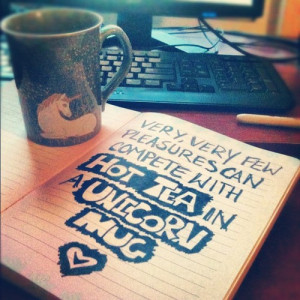 VERY, VERY FEW
PLEASURES CAN
COMPETE WITH
HOT TEA IN
A UNICORN
MUG